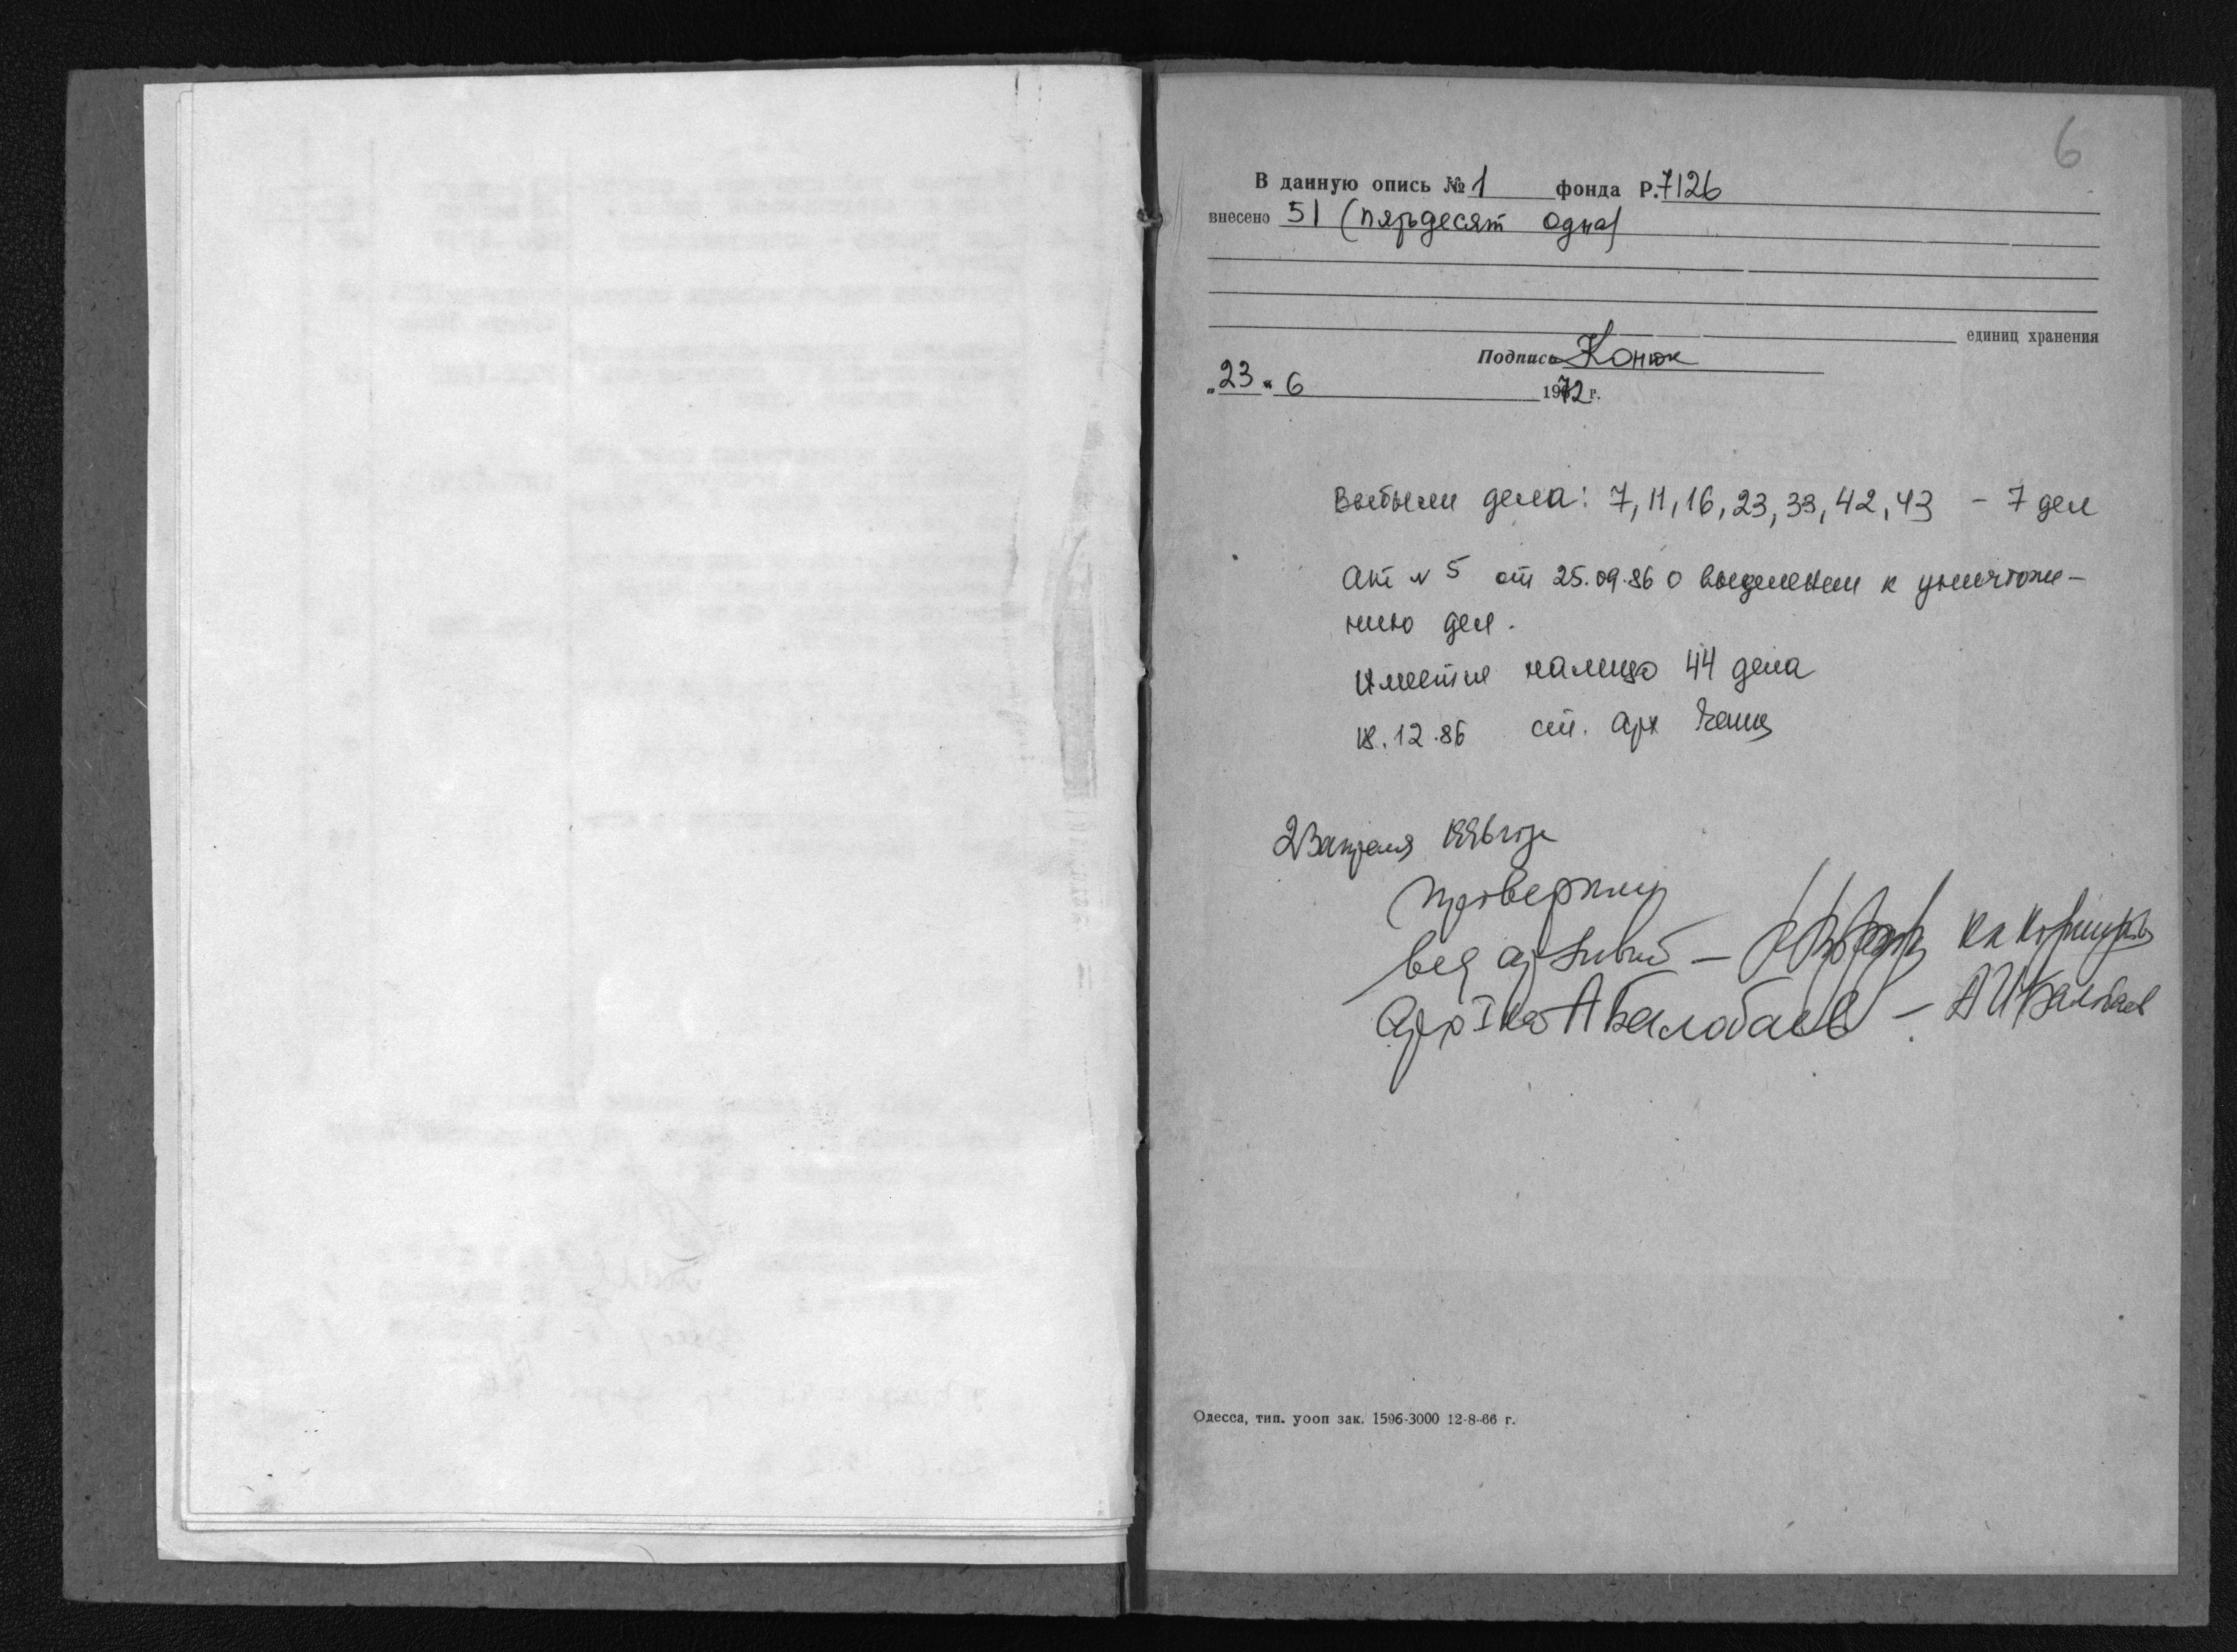 6
В данную опись № 1 фонда Р. 7126
внесено 51 (пятьдесят одна)
единиц хранения
Подпись Конюк
„23“ 6 1972 г.
Выбыли дела: 7, 11, 16, 23, 33, 42, 43 – 7 дел
Акт N 5 от 25.09.86 о выделении к уничтоже-
нию дел.
Имеется налицо 44 дела
18.12.86 ст. арх
23 апреля 1996 года
проверили
вед архивист –
Арх I кат АБалабаев – А И Балабаев
Одесса, тип. уооп зак. 1596-3000 12-8-66 г.